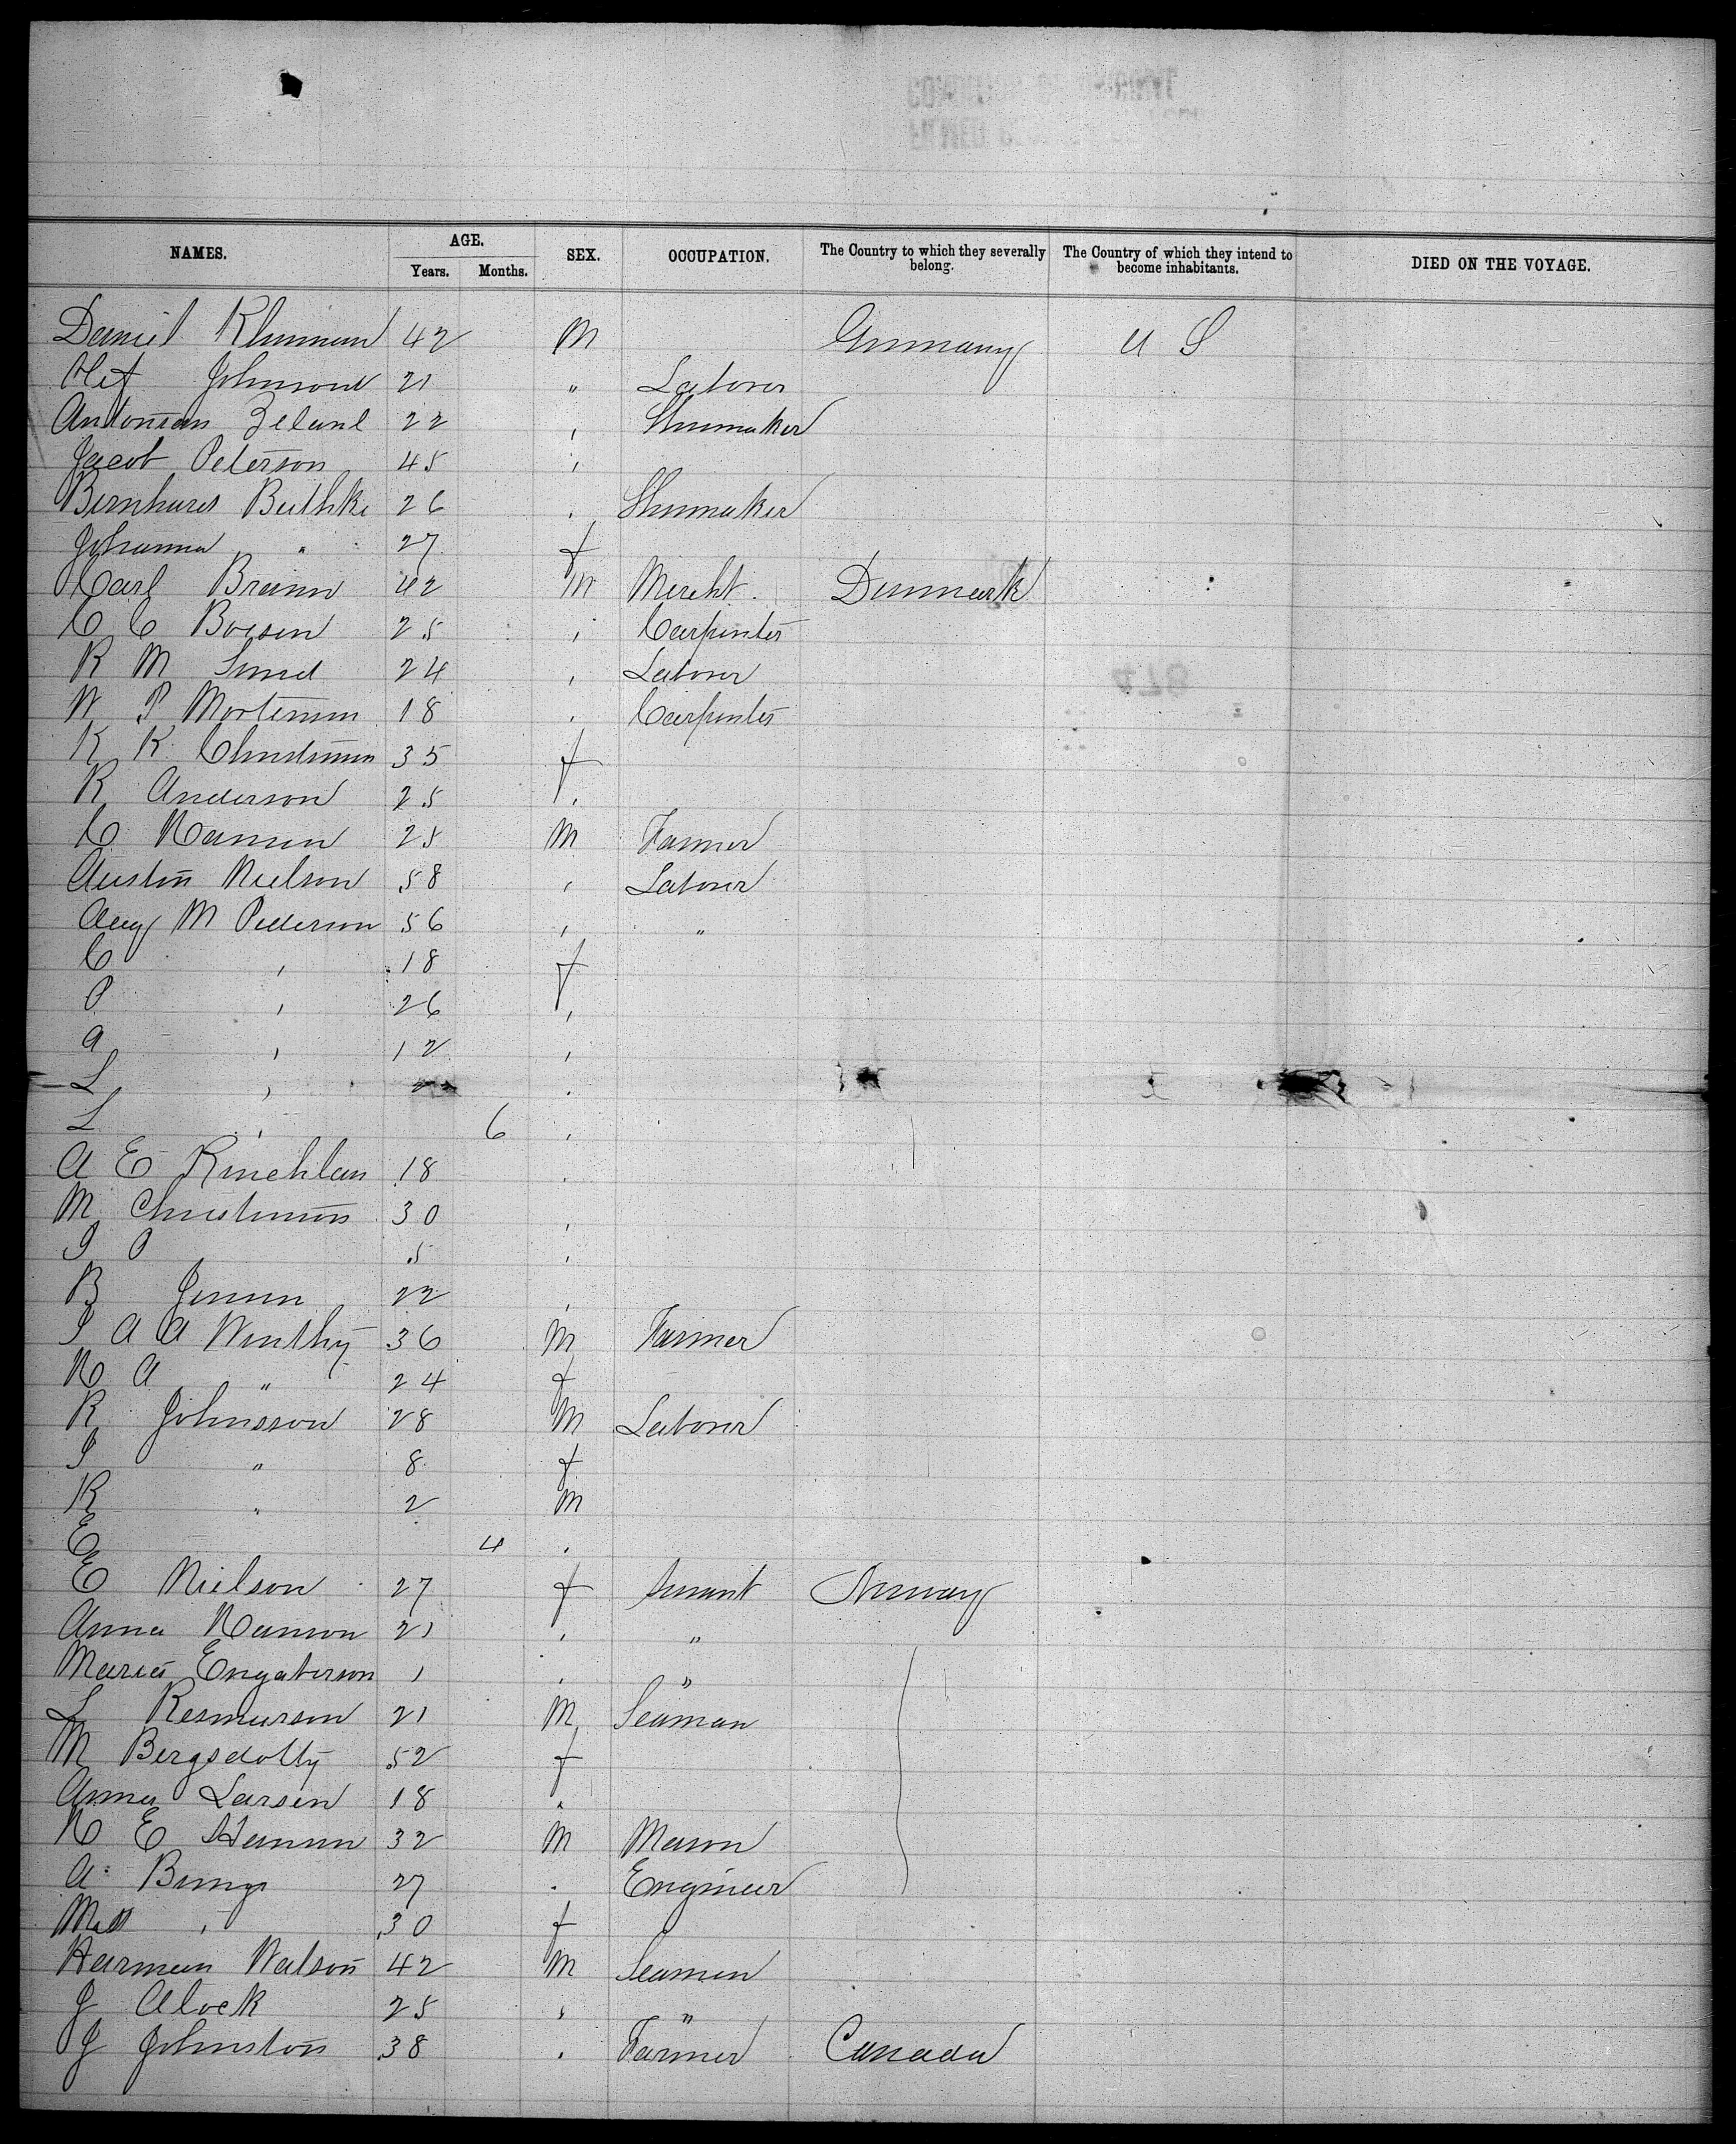 NAMES. AGE. SEX. OCCUPATION. The Country to which they severally belong. The Country of which they intend to become inhabitants. DIED ON THE VOYAGE.
Years. Months.
Daniel 42 M Germany U S
Olef Johnson 21 " Laborer
22 , Shumaker
Jacob Peterson 45 ,
Bernhard Buthke 26 . Shumaker
Johanna " 27 f
Carl Braun 42 M Mercht. Denmark
C C Boesen 25 , Carpenter
R M Lund 24 , Laborer
N P Mortensen 18 , Carpenter
K K Christensen 35 f
R Anderson 25 ,
C Hansen 25 M Farmer
Austin Nielson 58 , Laborer
Aug M Pederson 56 , "
C , 18 f
P , 26 ,
A , 12 ,
L , .
L , 6 ,
A E 18 .
M Christensen 30 ,
I P 5 ,
B Jensen 22 ,
I A A Winthy 36 M Farmer
N A " 24 f
R Johnsson 28 M Laborer
I " 8 f
R " 2 M
E 4 .
E Nielson 27 f servant Norway
Anna Hanson 21 , "
Maria 1 . "
L Rasmusson 21 M Seaman
M Bergsdotty 52 f
Anna Larsen 18 "
N E Hansen 32 M Mason
A Bungs 27 . Engineer
Mrs , 30 f
Harman Watson 42 M Seaman
J Alock 25 , "
J Johnston 38 . Farmer Canada